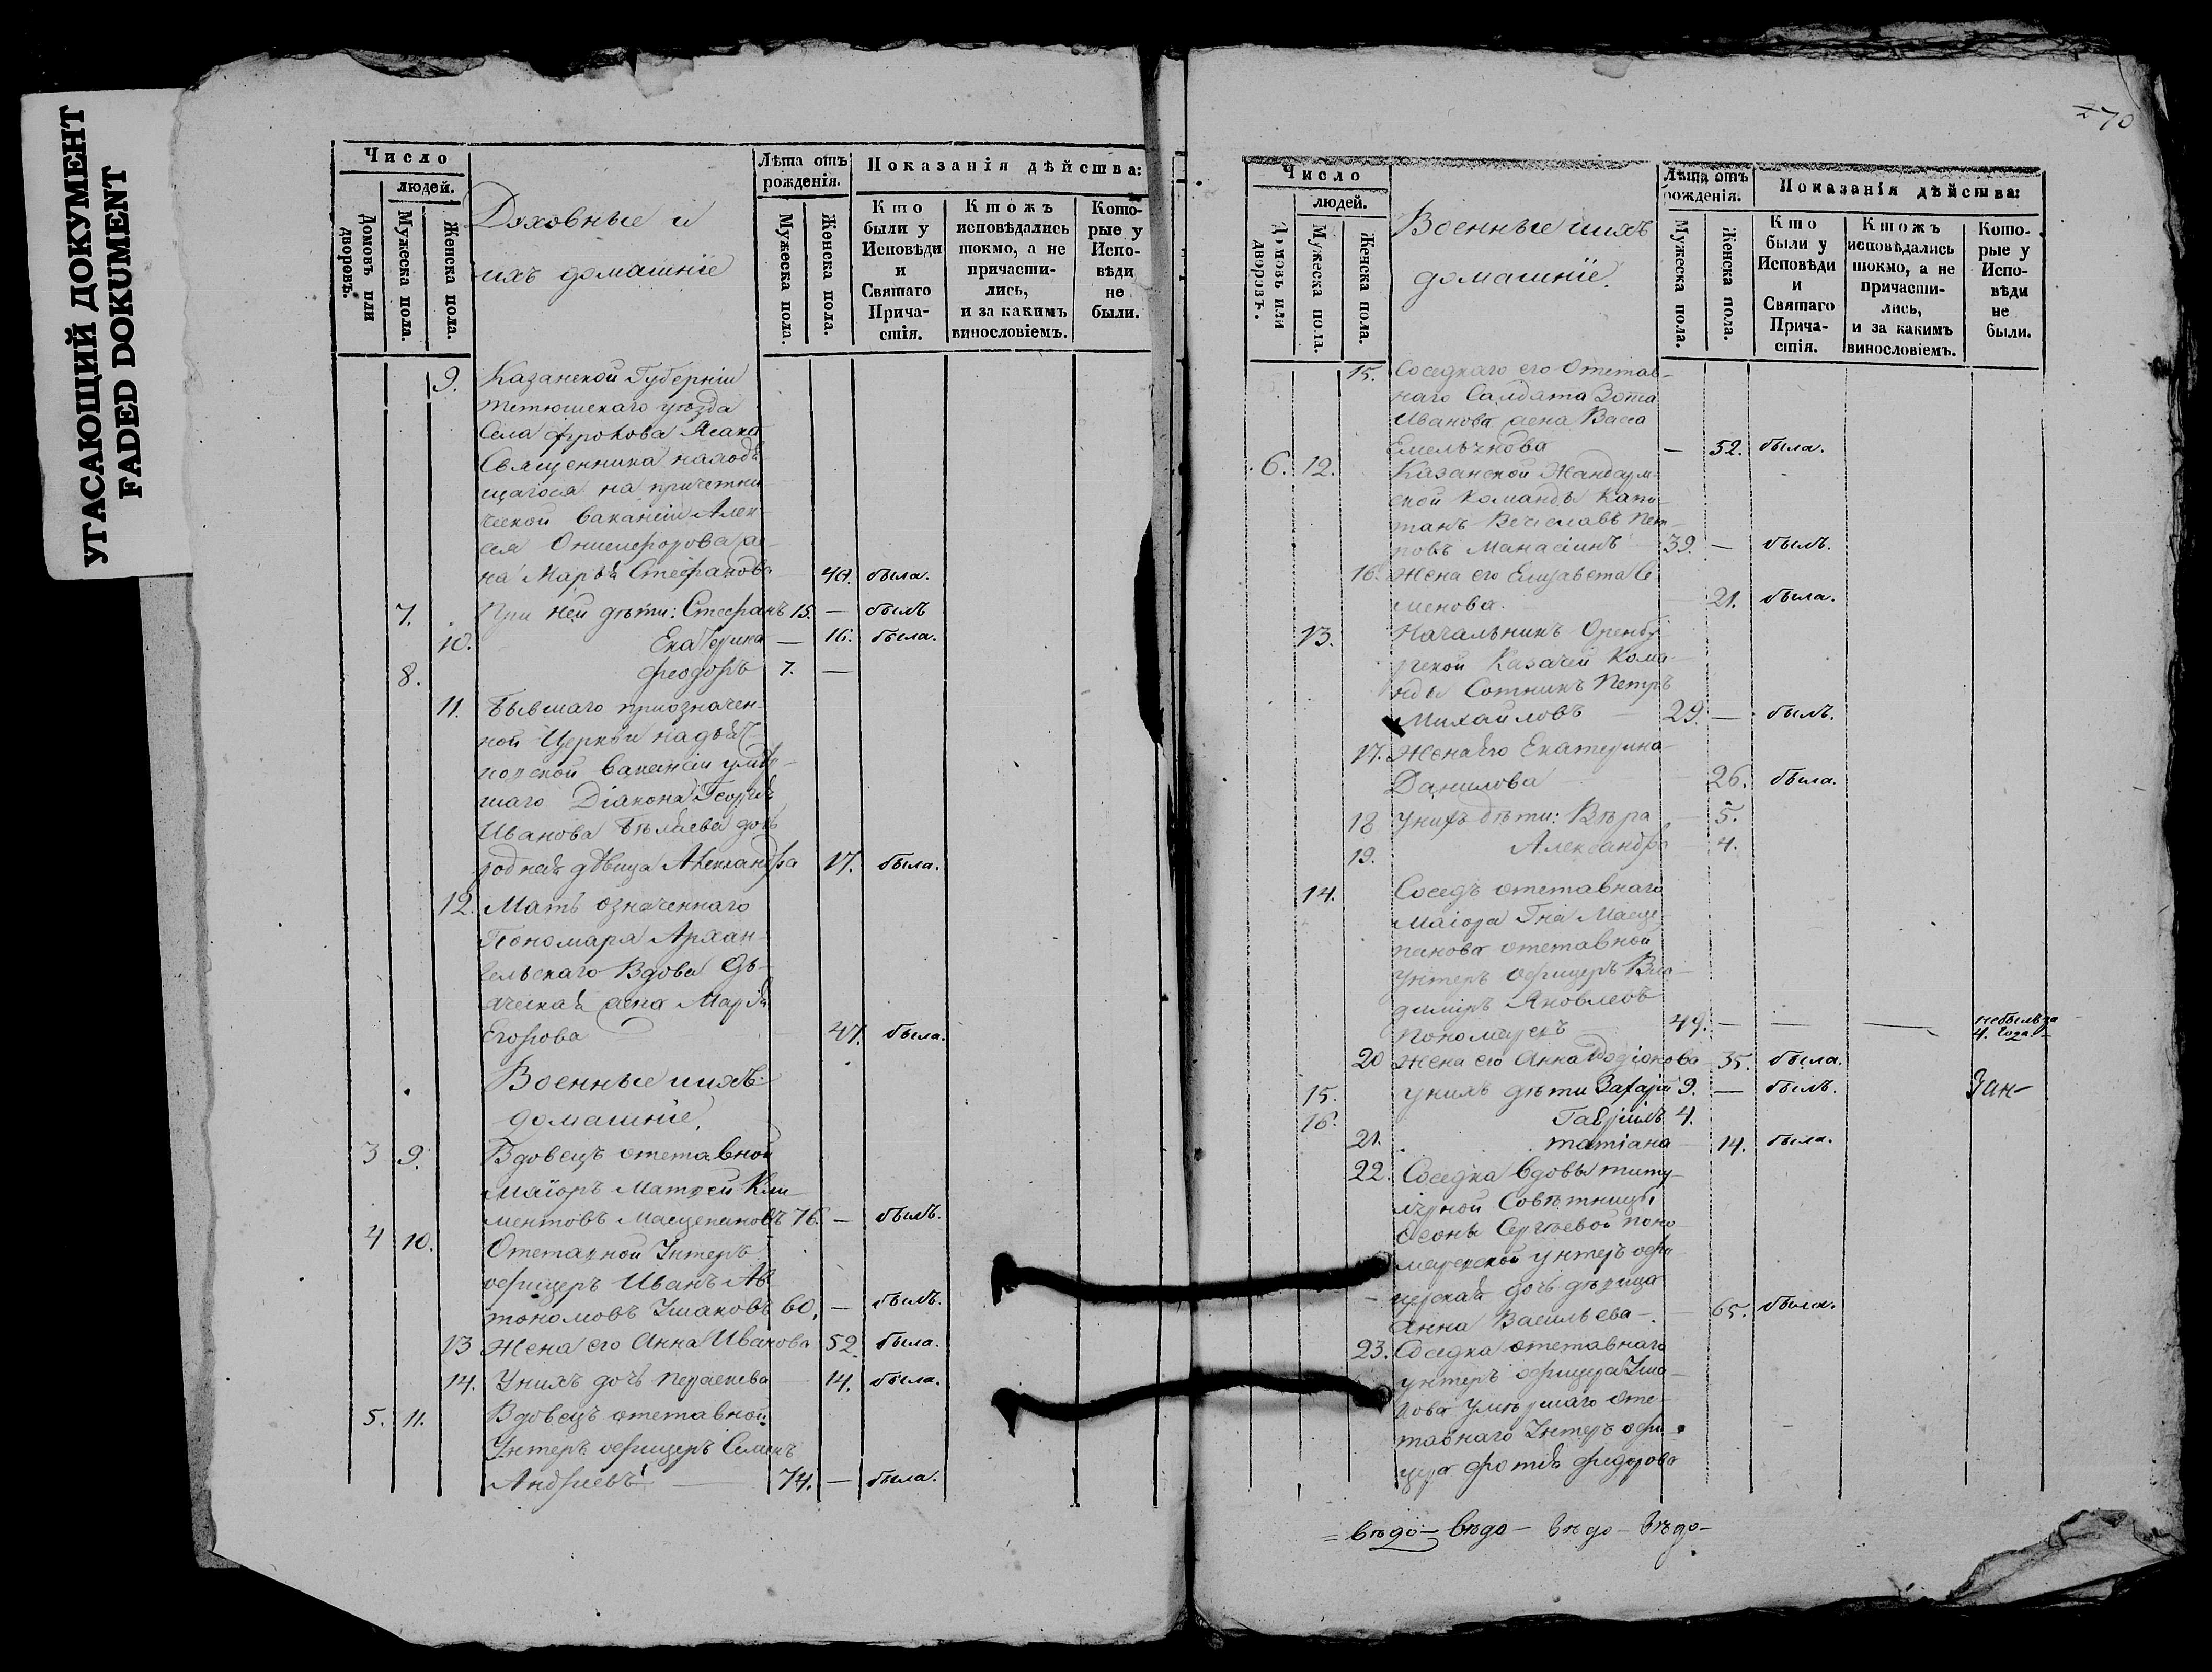 УГАСАЮЩИЙ ДОКУМЕНТ
FADED DOKUMENT
Число
людей.
Домовъ или дворовъ.
Мужеска пола.
Женска пола.
Духовные и
ихъ домашніе
Лѣта отъ рожденія.
Мужеска пола
Женска пола.
Показанія дѣйства:
Кто были у Исповѣди и Святаго Причастія.
Ктожъ исповѣдались токмо, а не причастились, и за какимъ винословіемъ.
Которые у Исповѣди не были.
9. Казанской Губерніи
Тетюшскаго уѣзда
Села Фролова
Священника находя
щагося на причетни
ческой вакансіи Алек
сея Онисифорова же
на Марья Стефанова 40. была.
7. При ней дѣти: Стефанъ 15. — былъ
10. Екатерина — 16. была.
8. Феодоръ 7. —
11. Бывшаго приозначен-
ной Церкви на
вакансіи умер
шаго Діакона Георгія
Иванова Бѣляева дочь
родная дѣвица Александра 17. была.
12. Мать означеннаго
Пономаря Архан-
гельскаго Вдова Дь-
яческая жена Марья
Егорова 47. была.
Военные иихъ
домашніе.
3 9. Вдовецъ отставной
Маіоръ Матвей Кли
ментовъ Масценановъ 76. — былъ.
4 10. Отставной Унтеръ
офицеръ Иванъ Ав
тономовъ Ушаковъ 60. — былъ.
13 Жена его Анна Иванова 52. была.
14. Унихъ дочь 14. была.
5. 11. Вдовецъ отставной
Унтеръ офицеръ Семенъ
Андреевъ 74. — была.
270
Число
людей.
Домовъ или дворовъ.
Мужеска пола.
Женска пола.
Военные иихъ
домашніе.
Лѣта отъ рожденія.
Мужеска пола.
Женска пола.
Показанія дѣйства:
Кто были у Исповѣди и Святаго Причастія.
Ктожъ исповѣдались токмо, а не причастились, и за какимъ винословіемъ.
Которые у Исповѣди не были.
15. его Отстав-
наго Салдата Зота
Иванова жена Васса
Емельянова — 52. была.
6. 12. Казанской Жандарм-
ской Команды Капи-
танъ Вечеславъ Пет-
ровъ Манасеинъ 39. — былъ.
16. Жена его Елизавета Се
менова. 21. была.
13. Начальникъ Оренбу
ргской Казачей Кома-
нды Сотникъ Петръ
Михайловъ 29. — былъ.
17. Жена его Екатерина
Данилова 26. была.
18 Унихъ дѣти: Вѣра 5.
19. Александра 4.
14. Соседъ отставнаго
Маіора Гна Масце-
нанова отставной
Унтеръ офицеръ Вла-
димиръ Яковлевъ
49. — — — небылъ за
4. года.
20 Жена его Анна Родіонова 35. была.
15. Унихъ дѣти Захарій 9. — былъ.
16. Гавріилъ 4.
21. татіана 14. была.
22. Соседка вдовы титу
лярной Совѣтницы
Сергѣевой поно
маревской унтеръ офи
церская дочь дѣвица
Анна Васильева 65. была.
23. Соседка отставнаго
унтеръ офицера Уша-
кова умершаго отс-
тавнаго Унтеръ офи
цера Фотія Федорова
=вѣдо- вѣдо- вѣдо- вѣдо-